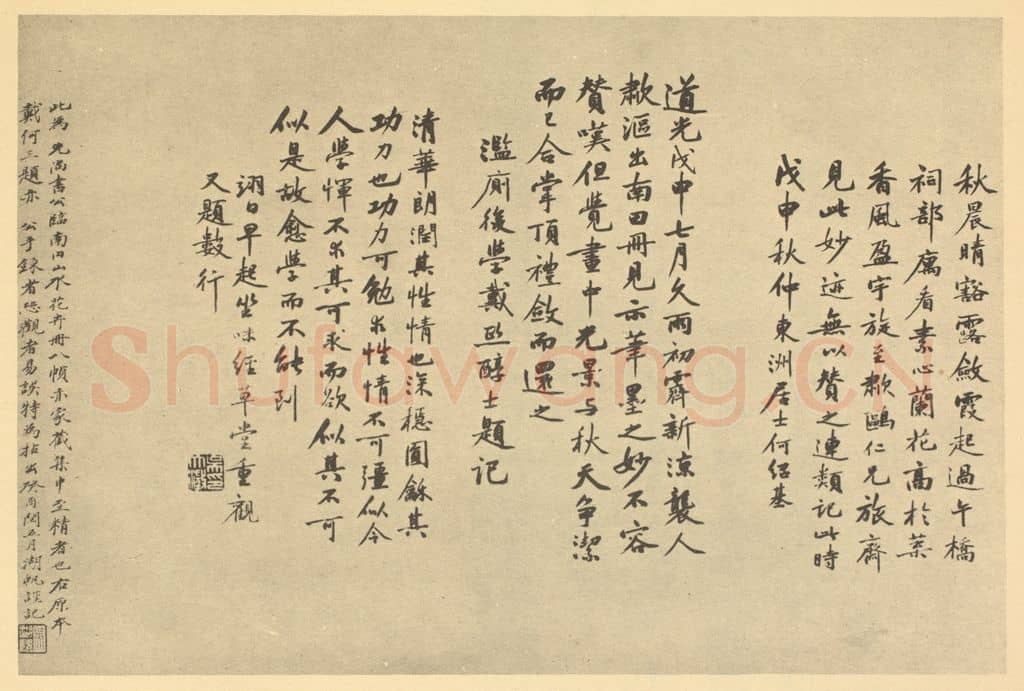 秋晨晴豁露斂霞起過午橋
祠部廎看素心蘭花高於葉
香風盈宇旋至漱鷗仁兄旅齋
見此妙迹無以贊之連類記此時
戊申秋仲東洲居士何紹基
道光戊申七月久雨初霽新涼襲人
漱漚出南田冊見示筆墨之妙不容
贊嘆但覺畫中光景与秋天爭潔
而已合掌頂禮斂而還之
濫廁後學戴熙醇士題記
清華朗潤其性情也深穩圓穌其
功力也功力可勉求性情不可彊似今
人學惲不求其可求而欲似其不可
似是故愈學而不能到
翊日早起坐味經草堂重觀
又題數行
此為先尚書公臨南田山水花卉冊八幀亦家藏集中至精者也右原本
戴何三題亦公手錄者恐觀者易誤特為拈出癸酉閏五月湖帆謹記
Shufawang.CN